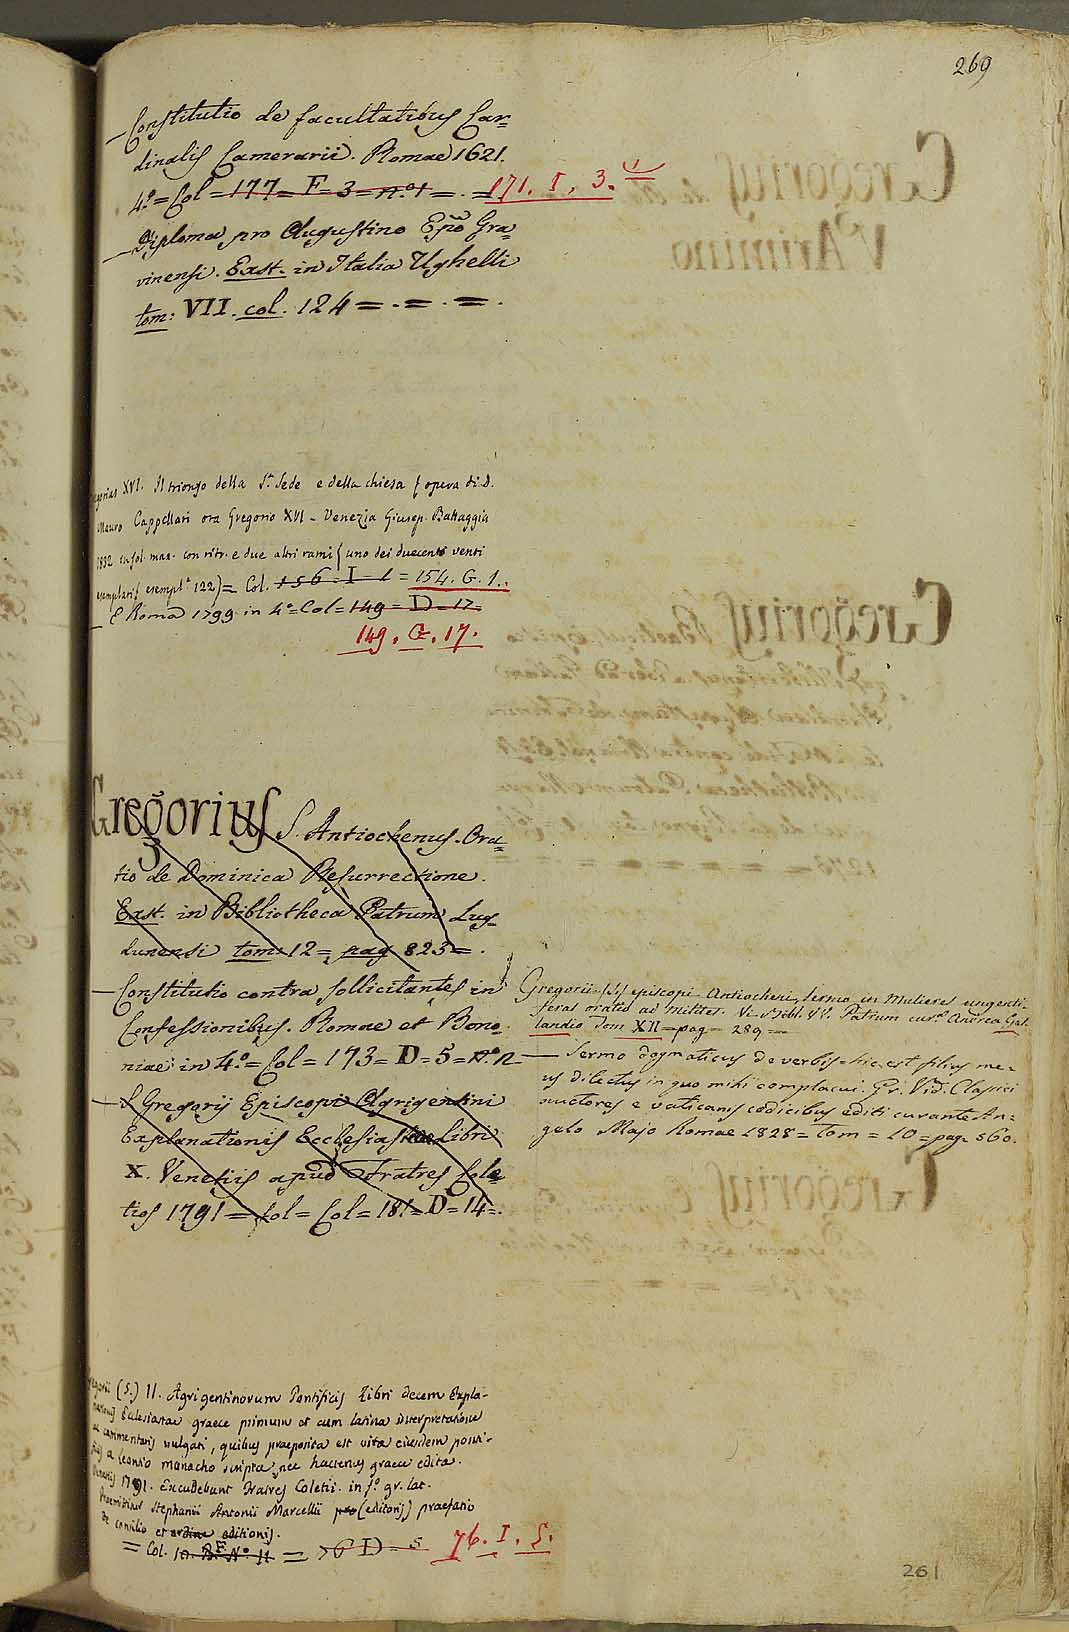 269
— Constitutio de facultatibus Car=
dinalis Camerarii. Romae 1621.
4º = Col = 177 = F = 3 = nº 1 = . = 171. I. 3. (1)
— Diploma pro Augustino Epõ Gra=
vinensi. Exst. in Italia Ughelli
tom: VII. col. 124 = . = . = .
Gregorius XVI. Il trionfo della S.ª Sede e della chiesa { opera di D.
Mauro Cappellari ora Gregorio XVI - Venezia Giusep. Battaggia
1832 in fol. max. con ritr. e due altri rami { uno dei duecento venti
esemplari { esempl.e 122) = Col. 156 - I - 1 = 154. G. 1.
— E Roma 1799 in 4º = Col = 149 = D = 17 =
149. G. 17.
Gregorius S. Antiochenus. Ora=
tio de Dominica Resurrectione.
Exst. in Bibliotheca Patrum Lug=
dunensi tom: 12 = pag 823 = .
— Constitutio contra sollicitantes in
Confessionibus. Romae et Bono=
niae in 4º = Col = 173 = D = 5 = nº 2
— S. Gregorij Episcopi Agrigentini
Explanationis Ecclesiastae Libri
X. Venetiis apud Fratres Cole=
tios 1791 = fol = Col = 181 = D = 14 = .
Gregorii (S.) episcopi Antiocheni, Sermo in Mulieres ungenti=
feras oratio ad
Bibl. VV. Patrum cur.e Andrea Gal=
landio Tom XII = pag = 289 =
— Sermo dogmaticus de verbis = hic est filius me=
us dilectus in quo mihi complacui. Gr. Vid. Classici
auctores e vaticanis codicibus editi curante An=
gelo Majo Romae 1828 = tom = 10 = pag. 560.
Gregorii (S.) II. Agrigentinorum Pontificis Libri decem Expla-
nationis Eclesiastae graece primum et cum latina interpretatione
ac commentarij vulgati, quibus praeposita est vita eiusdem ponti-
ficis a Leontio monacho scripta, nec hactenus graece edita.
Venetiis 1791. Excudebant Fratres Coletii. in fº. gr. lat.
Stephanii Antonii Marcellii (editorij) praefatio
de consilio et ordine editionis.
= Col. 10. B. F. Nº. 11 = 76 D = 5 76. I. 5.
261